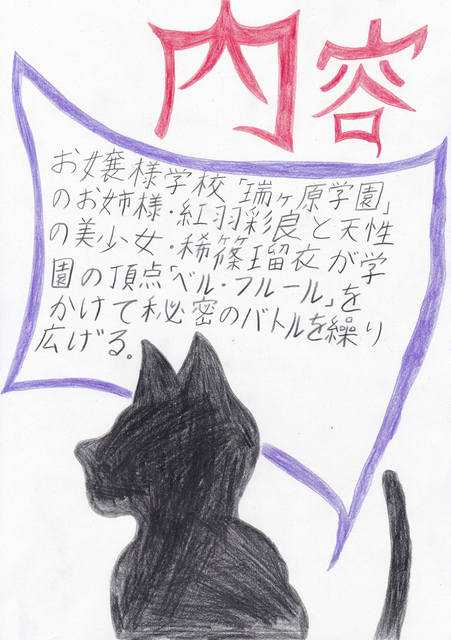 内容
お嬢様学校「瑞ヶ原学園」
のお姉様・紅羽彩良と天性
の美少女・稀篠瑠衣が学
園の頂点「ベル・フルール」を
かけて秘密のバトルを繰り
広げる。